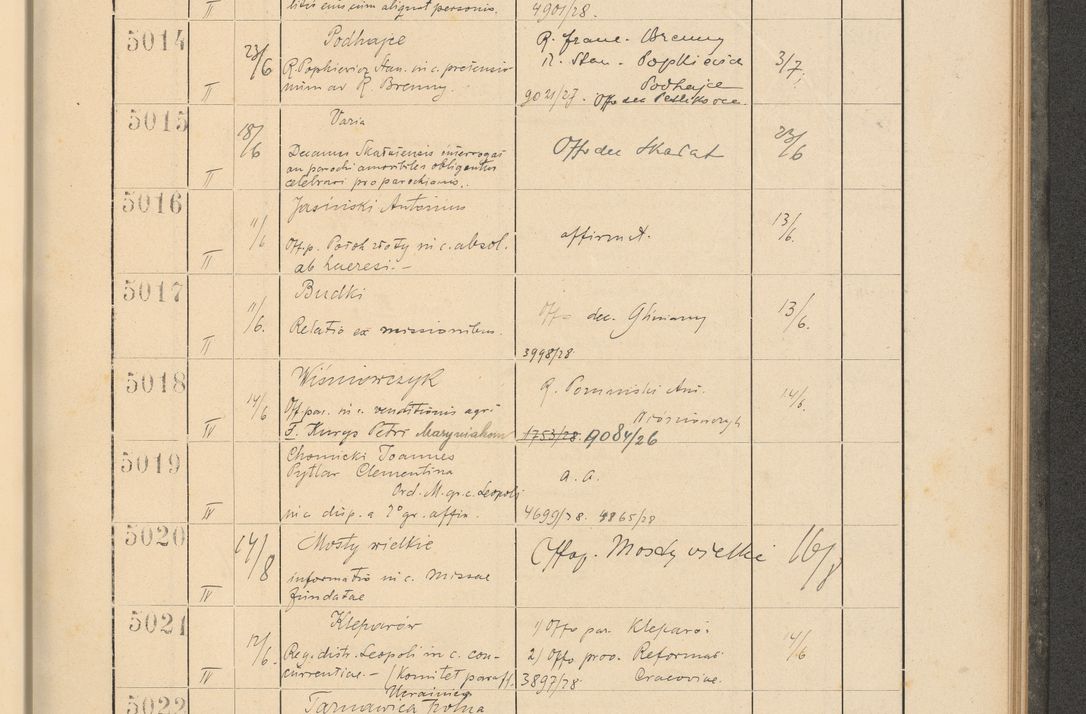 4901/28.
5014
II
23/6
Podhajce
R. Popkiewicz Stan. in c. pretensio-
R. Brenny.
R. franc. Brenny
R. Stan. Popkiewicz
Podhajce
9021/27.
3/7.
5015
II
18/6
Varia
Decanus Skałatensis interrogat
an parochi amovibiles obligantur
celebrari pro parochianis.
Offo dec Skałat
23/6
5016
II
11/6
Jasiński Antonius
Off. p. Potok złoty in c. absol.
ab haeresi.-
affirmat.
13/6.
5017
II
11/6.
Budki
Relatio ex missionibus.
Offo dec. Gliniany
3998/28.
13/6.
5018
IV
14/6
Wiśniowczyk
Off. par. in c. venditionis agri
F. Kurys Petri Maryniakom
R. Ant.
Wiśniowczyk
1753/28. 9084/26
14/6.
5019
IV
Chomicki Joannes
Pytlar Clementina
Ord. M. gr. c. Leopoli
in c. disp. a 1° gr. affin.
a. a.
4699/28. 4865/28
5020
IV
14/8
Mosty wielkie
informatio in c. Missae
fundatae
Offo p. Mosty wielkie
16/8
5021
IV
12/6.
Kleparów
Reg. distr. Leopoli in c. con-
currentiae.- (Komitet paraff.
1) Offo par. Kleparów
2) Offo prov. Reformat
Cracoviae.
3897/28.
14/6
5022
Ukrainica
Tarnawica polna